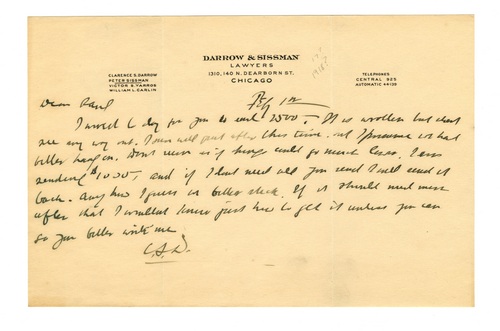 DARROW & SISSMAN
LAWYERS
1310, 140 N. DEARBORN ST.
CHICAGO
CLARENCE S. DARROW
PETER SISSMAN
VICTOR S. YARROS
WILLIAM L. CARLIN
TELEPHONES
CENTRAL 925
AUTOMATIC 44129
Dear Paul
I wired to day for you to send 2500 — It is rotten but don't
see any way out. I am well past this time, but I presume we had
better hang on. Don't never if things could go much
sending $1000 — and if I don't need all you send I will send it
back. Any how I guess we better stick. If it should need more
after that I wouldn't know just how to get it unless you can
so you better write me
C.S.D.